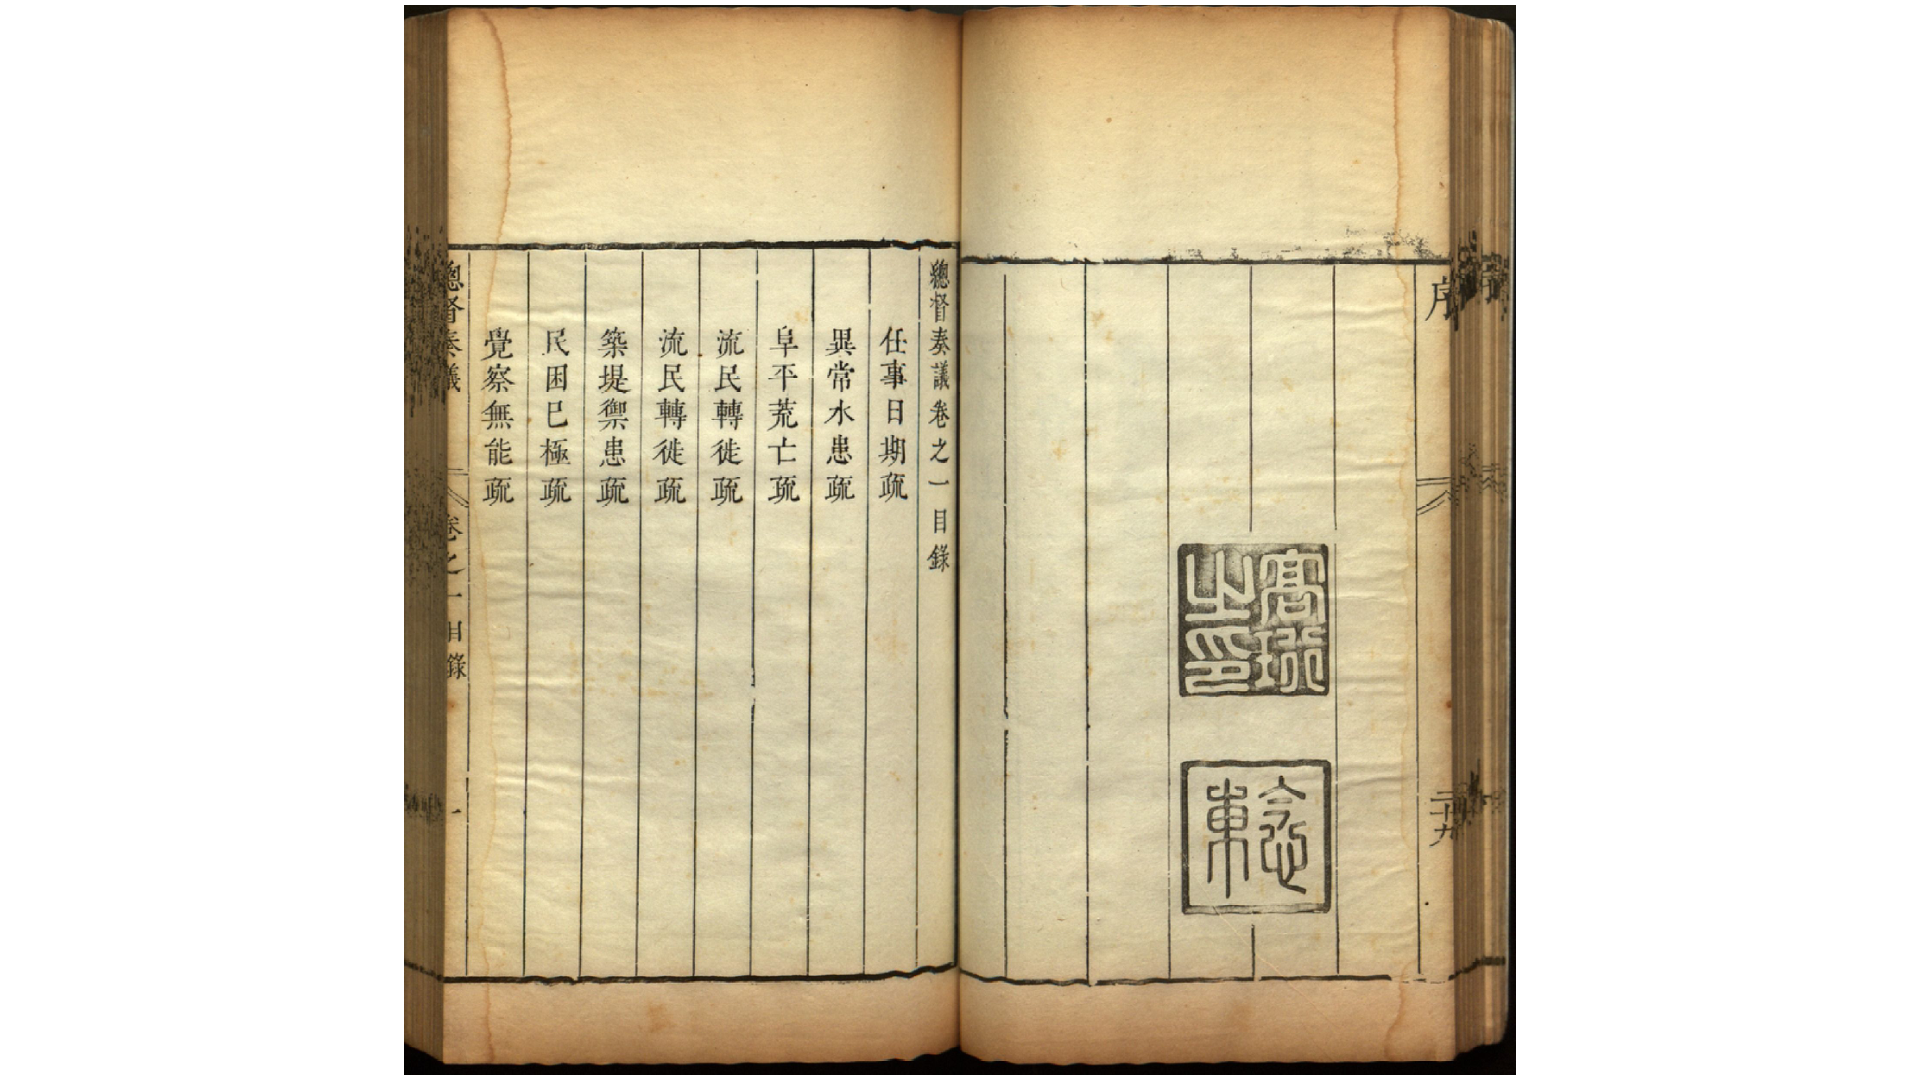 序
二十九
高珩之印
念東
總督奏議卷之一目錄
任事日期疏
異常水患疏
阜平荒亡疏
流民轉徙疏
流民轉徙疏
築堤禦患疏
民困巳極疏
覺察無能疏
總督奏議
卷之一目錄
一